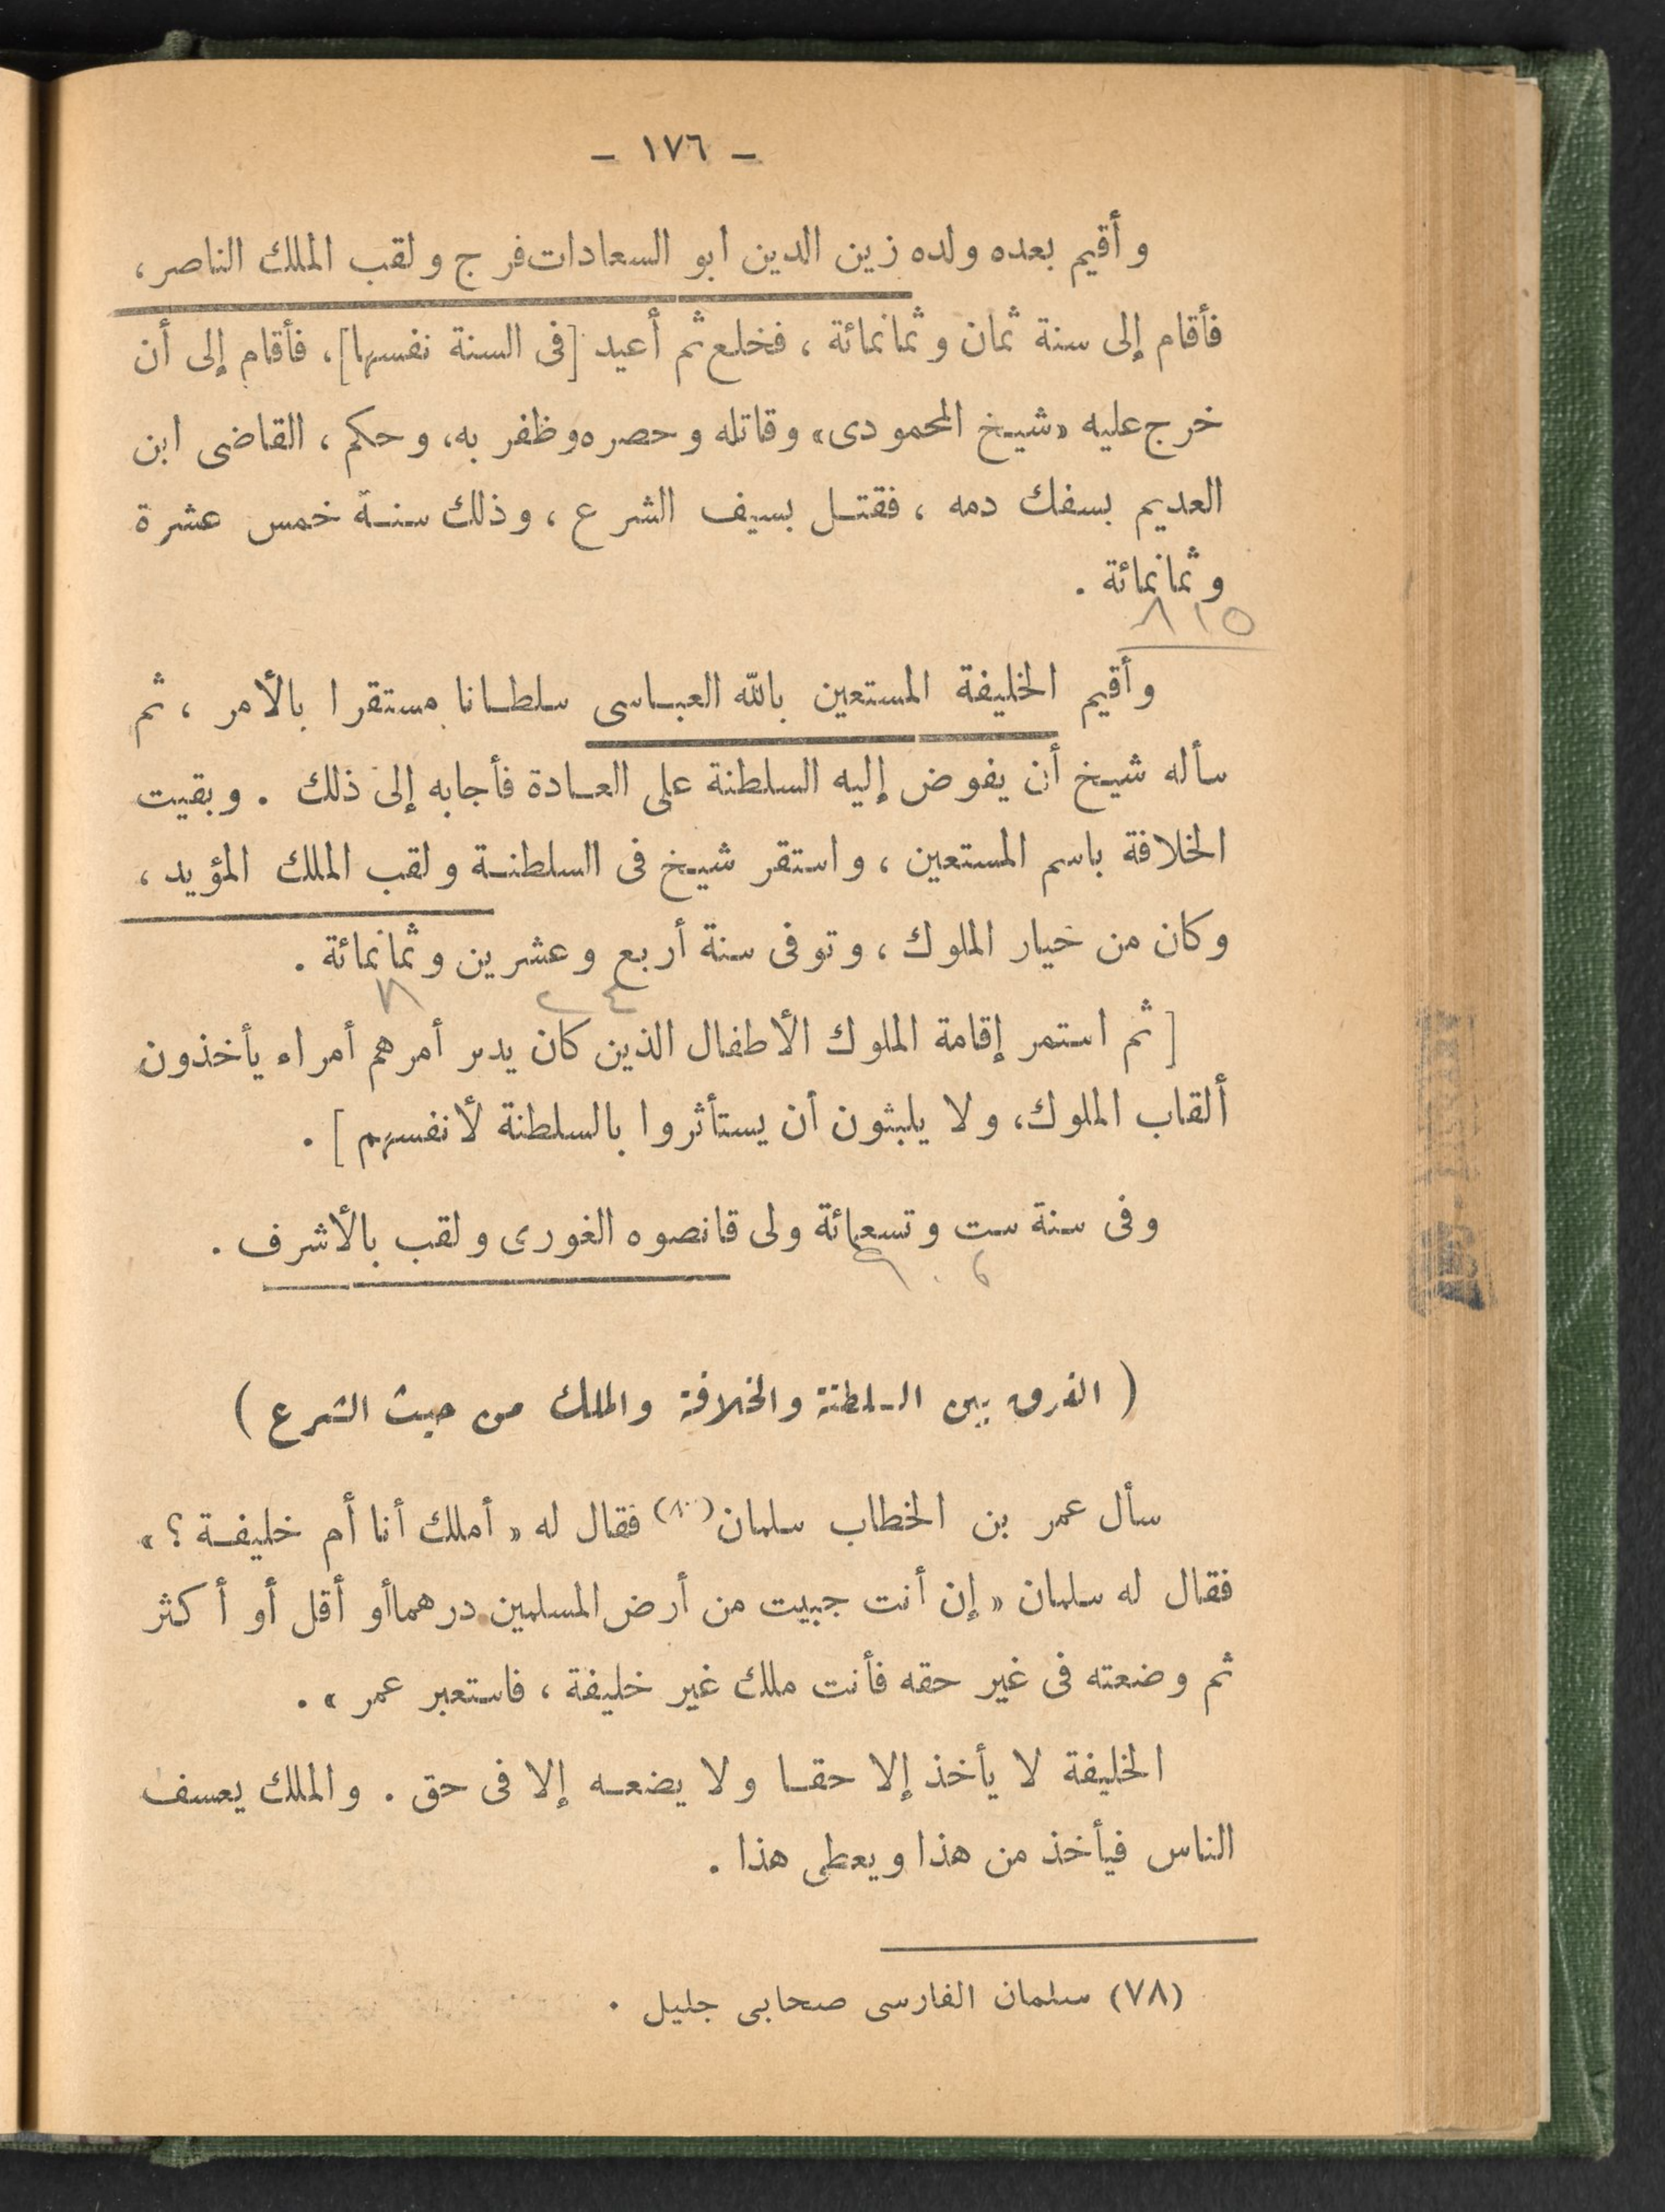 — ١٧٦ —
وأقيم بعده ولده زين الدين ابو السعادات فرج ولقب الملك الناصر ،
فأقام إلى سنة ثمان وثمانمائة ، فخلع ثم أعيد [فى السنة نفسها] ، فأقام إلى أن
خرج عليه «شيخ المحمودى» وقاتله وحصره وظفر به، وحكم ، القاضى ابن
العديم بسفك دمه ، فقتل بسيف الشرع ، وذلك سنة خمس عشرة
وثمانمائة .
٨١٥
وأقيم الخليفة المستعين بالله العباسى سلطانا مستقرا بالأمر ، ثم
سأله شيخ أن يفوض إليه السلطنة على العادة فأجابه إلى ذلك . وبقيت
الخلافة باسم المستعين ، واستقر شيخ فى السلطنة ولقب الملك المؤيد ،
وكان من خيار الملوك ، وتوفى سنة أربع وعشرين وثمانمائة .
٨ ٢ ٤
[ ثم استمر إقامة الملوك الأطفال الذين كان يدبر أمرهم أمراء يأخذون
ألقاب الملوك، ولا يلبثون أن يستأثروا بالسلطنة لأنفسهم ] .
وفى سنة ست وتسعمائة ولى قانصوه الغورى ولقب بالأشرف .
٩٠٦
( الفرق بين السلطنة والخلافة والملك من حيث الشرع )
سأل عمر بن الخطاب سلمان فقال له « أملك أنا أم خليفة ؟ »
فقال له سلمان « إن أنت جبيت من أرض المسلمين درهما أو أقل أو أكثر
ثم وضعته فى غير حقه فأنت ملك غير خليفة ، فاستعبر عمر » .
الخليفة لا يأخذ إلا حقا ولا يضعه إلا فى حق . والملك يعسف
الناس فيأخذ من هذا ويعطى هذا .
(٧٨) سلمان الفارسى صحابى جليل .